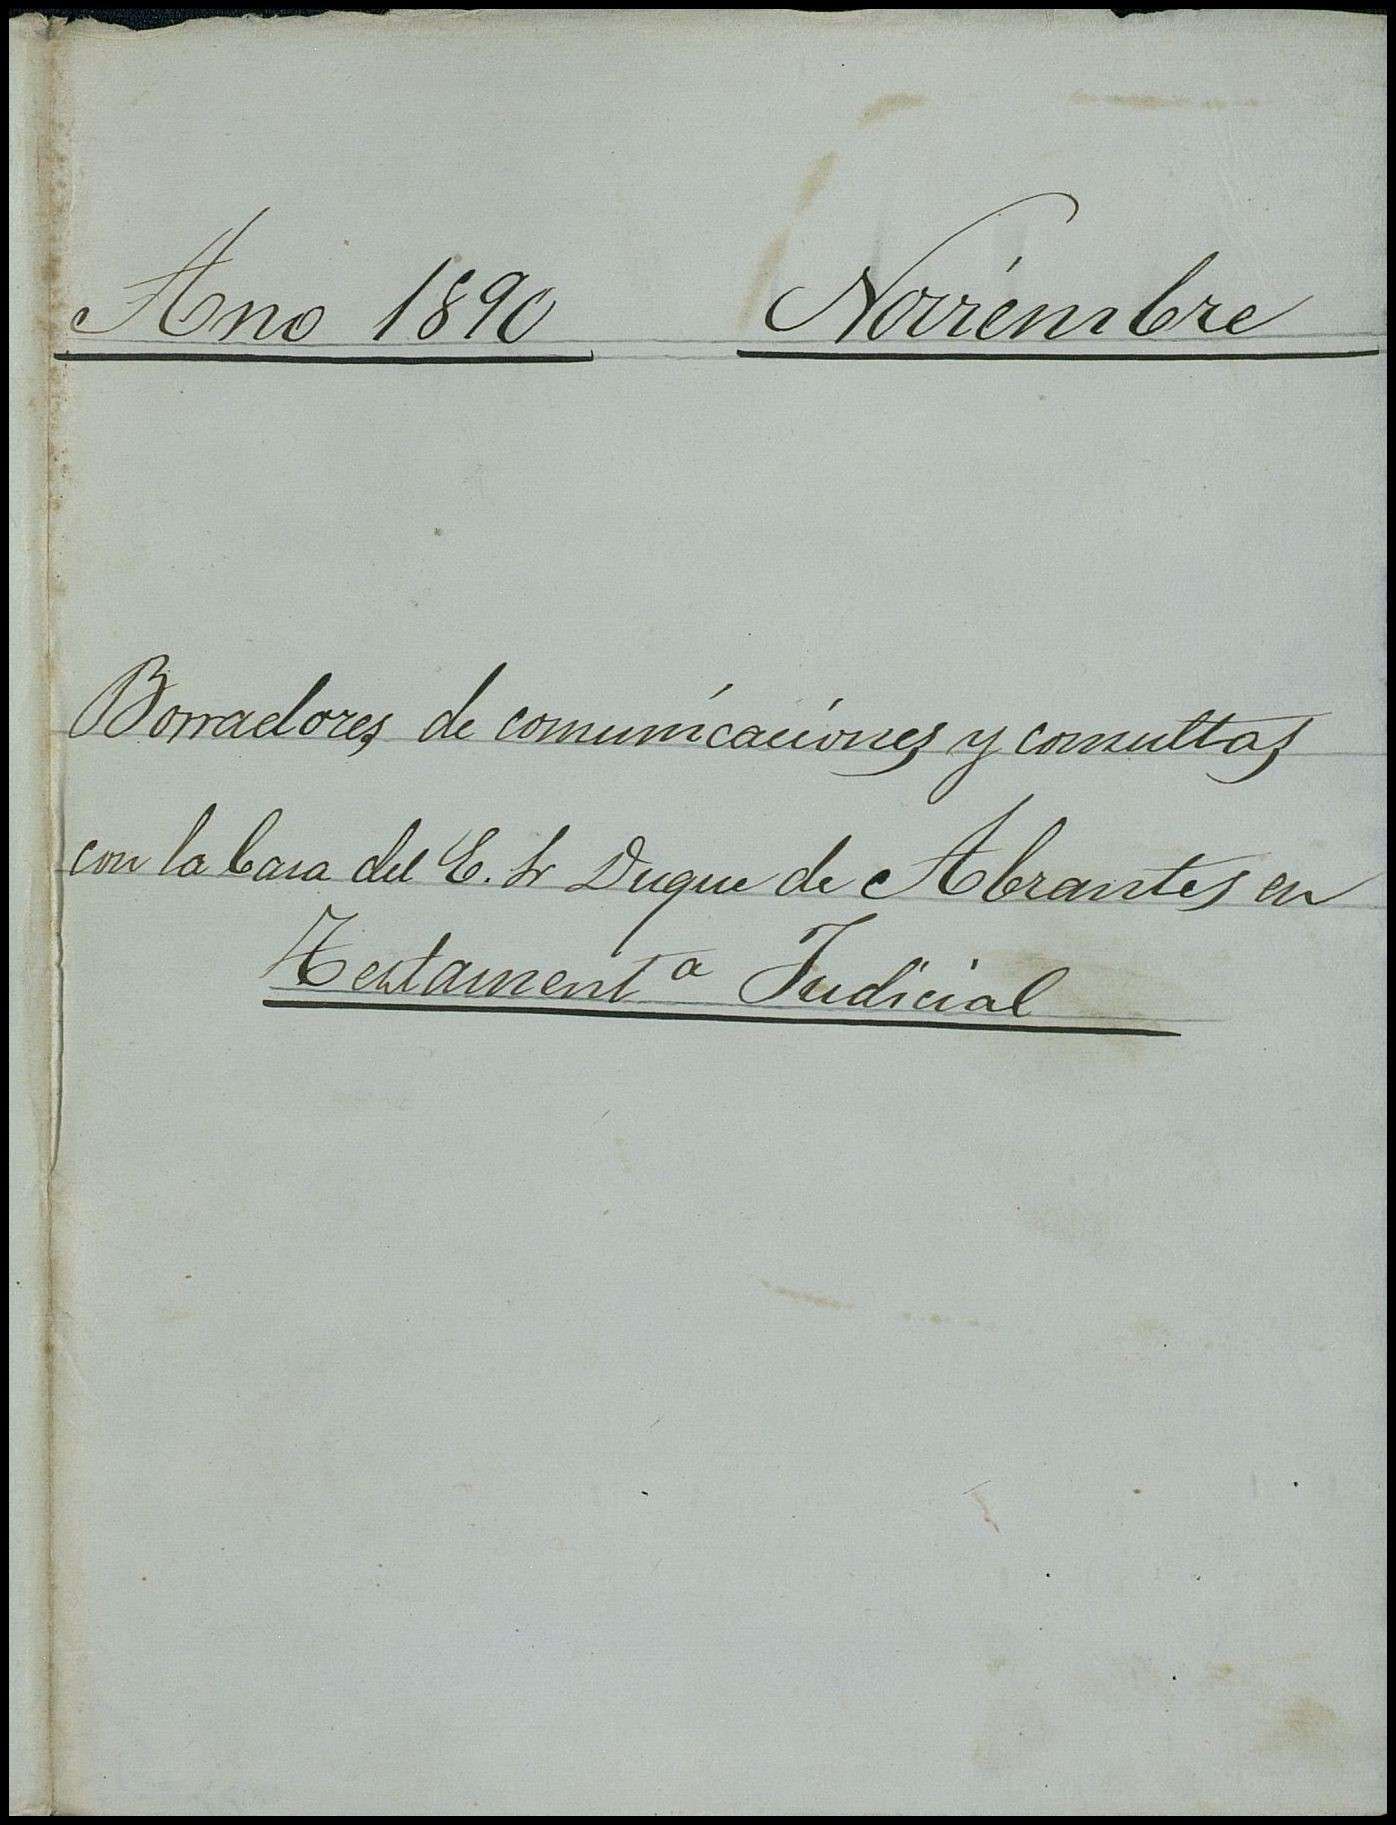 Ano 1890 Noviembre
Borradores de comunicaciones y consultas
con la Casa del E. Sr Duque de Abrantes en
Testamentª Judicial